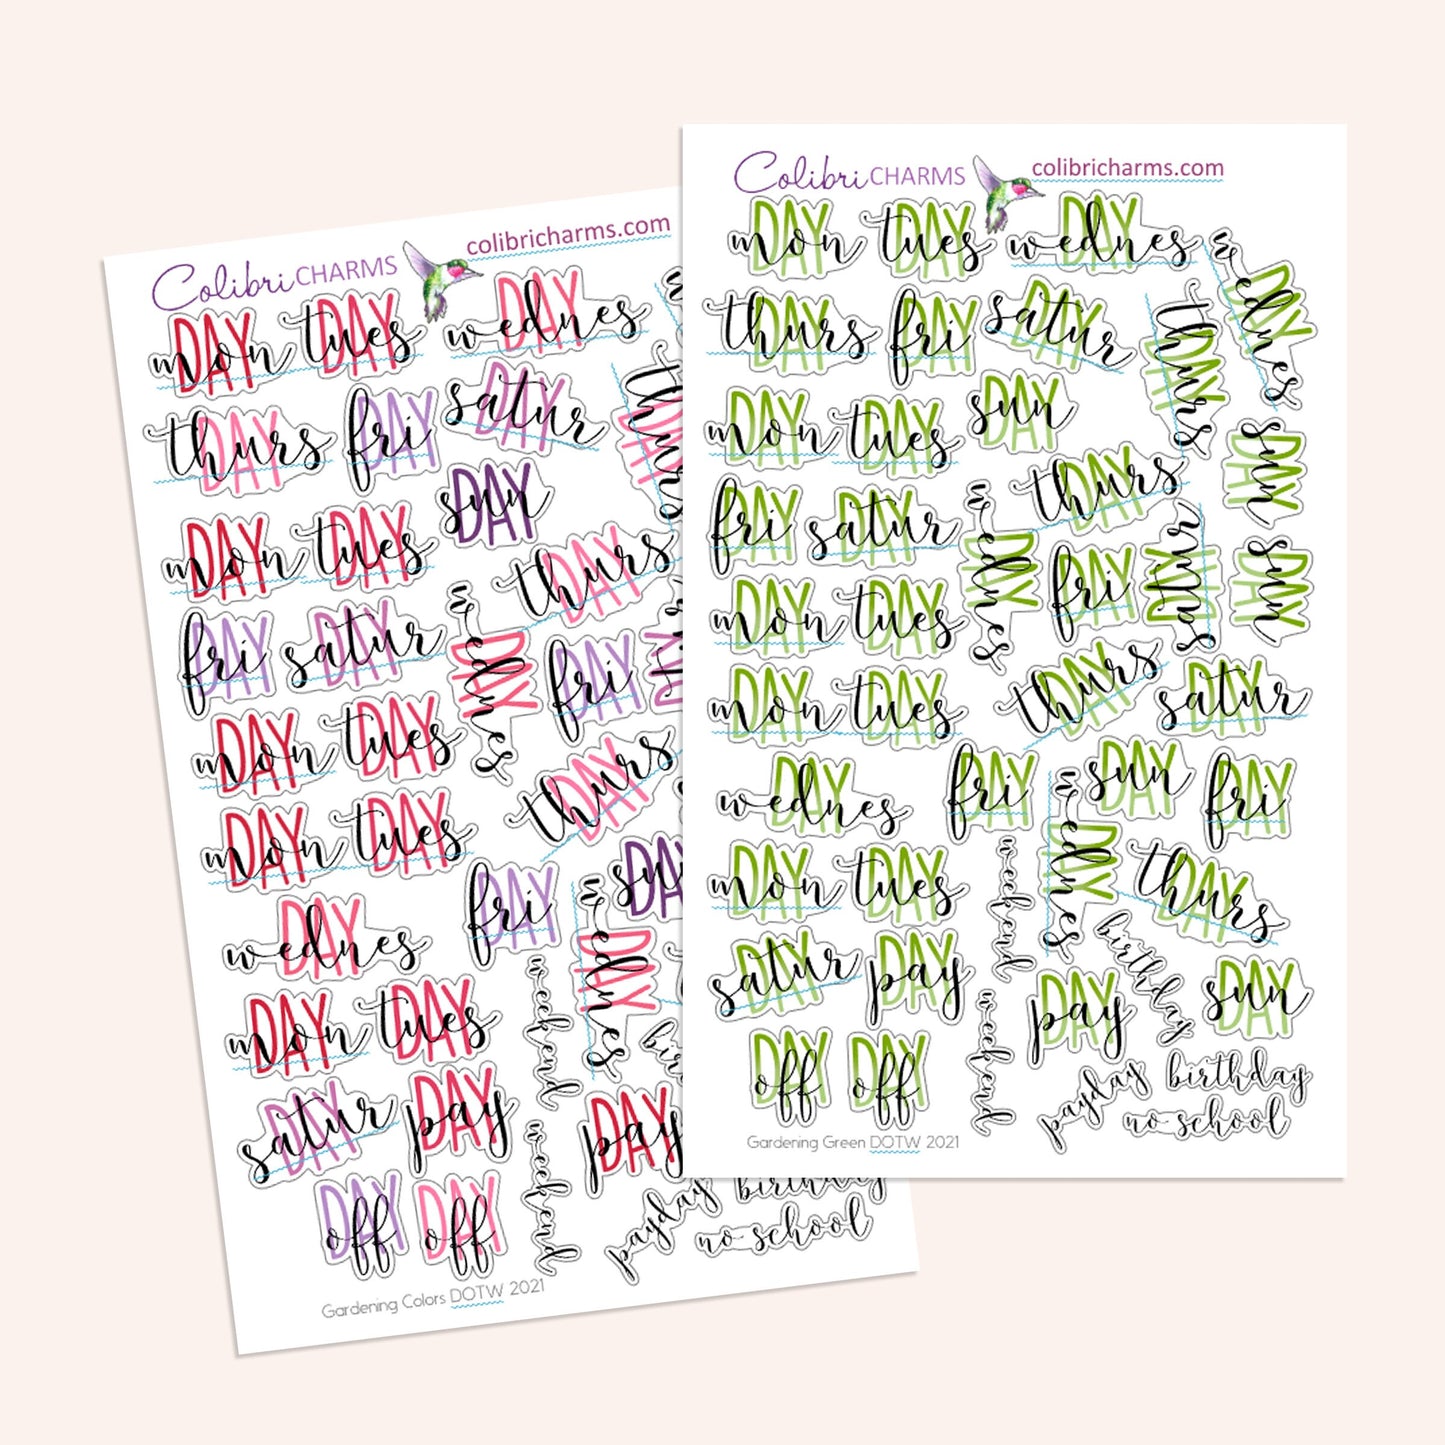 Colibri CHARMS colibricharms.com
mon DAY tues DAY wednes DAY
thurs DAY fri DAY satur DAY
thurs DAY
sun DAY
mon DAY tues DAY
thurs DAY
fri DAY satur DAY wednes DAY fri DAY
mon DAY tues DAY
thurs DAY
mon DAY tues DAY
sun DAY
wednes DAY fri DAY wednes DAY
weekend
mon DAY tues DAY
satur DAY pay DAY
weekend
pay DAY
off DAY off DAY
payday birthday
no school
Gardening Colors DOTW 2021
Colibri CHARMS colibricharms.com
mon DAY tues DAY wednes DAY
wednes DAY
thurs DAY fri DAY satur DAY thurs DAY
mon DAY tues DAY sun DAY
sun DAY
thurs DAY
fri DAY satur DAY wednes DAY
fri DAY satur DAY sun DAY
mon DAY tues DAY
thurs DAY satur DAY
mon DAY tues DAY
sun DAY
wednes DAY fri DAY fri DAY
wednes DAY
mon DAY tues DAY weekend thurs DAY
birthday
satur DAY pay DAY
pay DAY sun DAY
weekend
off DAY off DAY
payday birthday
no school
Gardening Green DOTW 2021